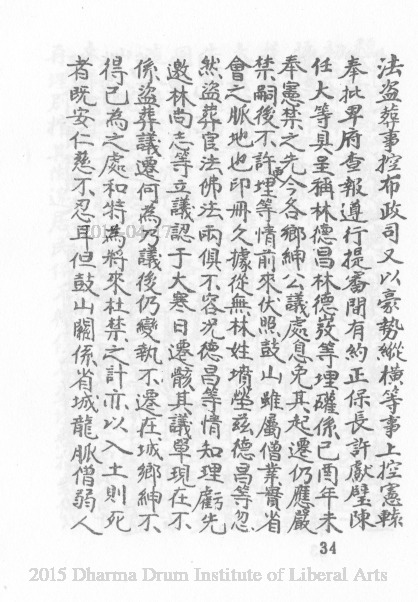 法盜葬事控布政司又以豪勢縱橫等事上控憲轅
奉批畀府查報遵行提審間有約正保長許獻璧陳
任大等具呈稱林德昌林德發等埋確係己酉年未
奉憲禁之先今各鄉紳公議處息免其起遷仍應嚴
禁嗣後不許更埋等情前來伏照鼓山雖屬僧業實省
會之脈地也印冊久據從無林姓墳塋茲德昌等忽
然盜葬官法佛法兩俱不容況德昌等情知理虧先
邀林尚志等立議認于大寒日遷骸其議單現在不
係盜葬議遷何為乃議後仍變執不遷在城鄉紳不
得已為之處和特為將來杜禁之計亦以入土則死
者既安仁慈不忍耳但鼓山關係省城龍脈僧弱人
34
2015 Dharma Drum Institute of Liberal Arts